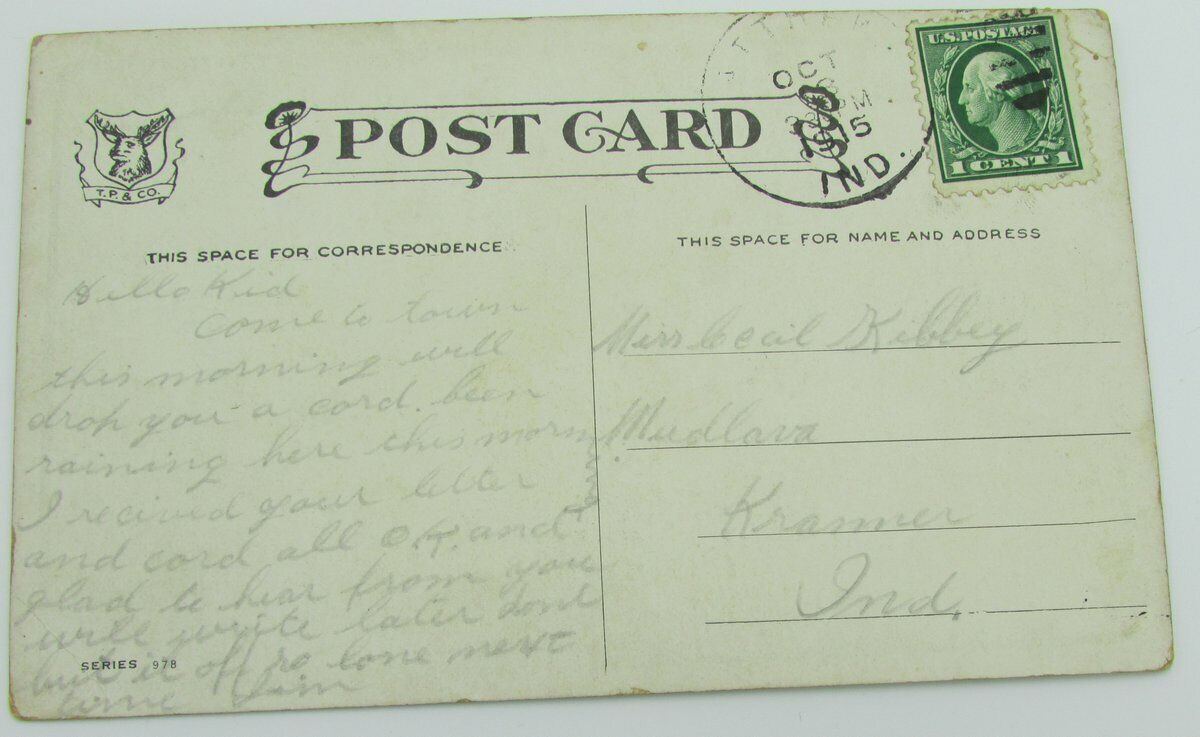 T.P. & CO.
POST CARD
OCT
15
IND.
U.S. POSTAGE
1 CENT 1
THIS SPACE FOR CORRESPONDENCE
THIS SPACE FOR NAME AND ADDRESS
Hello Kid
come to town
this morning will
drop you a cord. been
raining here this morn
I recived your letter
and cord all O.K. and
glad to hear from you
will write later dont
but it off so lone next
time Jim
SERIES 978
Miss Cecil Kibbey
Mudlava
Kramer
Ind.